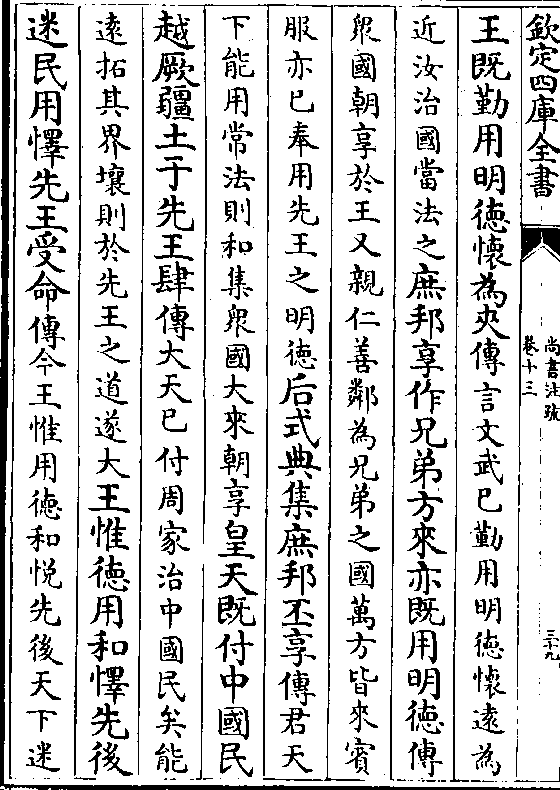 欽定四庫全書
尚書注疏
卷十三
三十九
王既勤用明德懷為夾傳言文武已勤用明德懷遠為
近汝治國當法之庶邦享作兄弟方來亦既用明德傳
衆國朝享於王又親仁善鄰為兄弟之國萬方皆來賓
服亦已奉用先王之明德后式典集庶邦丕享傳君天
下能用常法則和集衆國大來朝享皇天既付中國民
越厥疆土于先王肆傳大天已付周家治中國民矣能
遠拓其界壤則於先王之道遂大王惟德用和懌先後
迷民用懌先王受命傳今王惟用德和悅先後天下迷